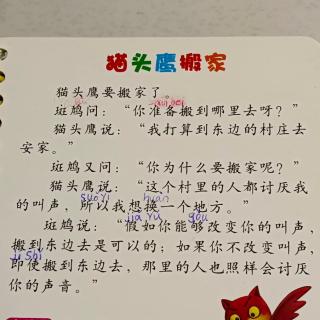 猫头鹰搬家
猫头鹰要搬家了。
斑鸠问：“你准备搬到哪里去呀？”
猫头鹰说：“我打算到东边的村庄去
安家。”
斑鸠又问：“你为什么要搬家呢？”
猫头鹰说：“这个村里的人都讨厌我
的叫声，所以我想换一个地方。”
suo yi huan
jia ru gou
斑鸠说：“假如你能够改变你的叫声，
搬到东边去是可以的；如果你不改变叫声，
ji shi
即使搬到东边去，那里的人也照样会讨厌
你的声音。”